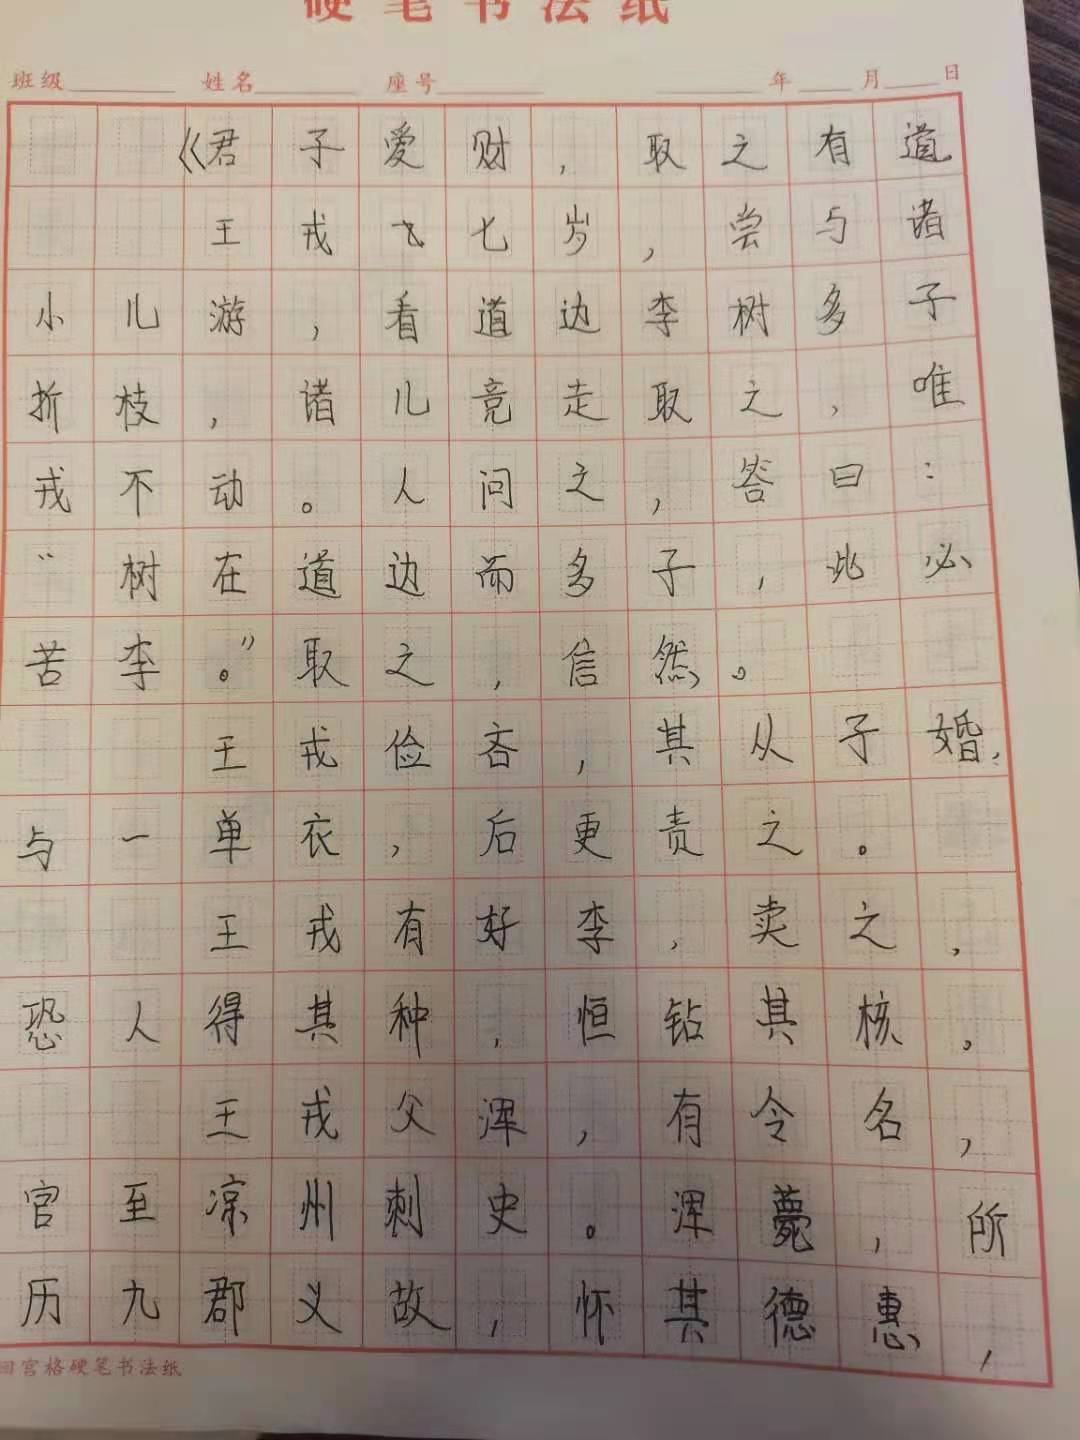 硬笔书法纸
班级 姓名 座号 年 月 日
《君子爱财,取之有道
王戎七岁,尝与诸
小儿游,看道边李树多子
折枝,诸儿竞走取之,唯
戎不动。人问之,答曰:
"树在道边而多子,此必
苦李。"取之,信然。
王戎俭吝,其从子婚,
与一单衣,后更责之。
王戎有好李,卖之,
恐人得其种,恒钻其核。
王戎父浑,有令名,
官至凉州刺史。浑薨,所
历九郡义故,怀其德惠,
回宫格硬笔书法纸